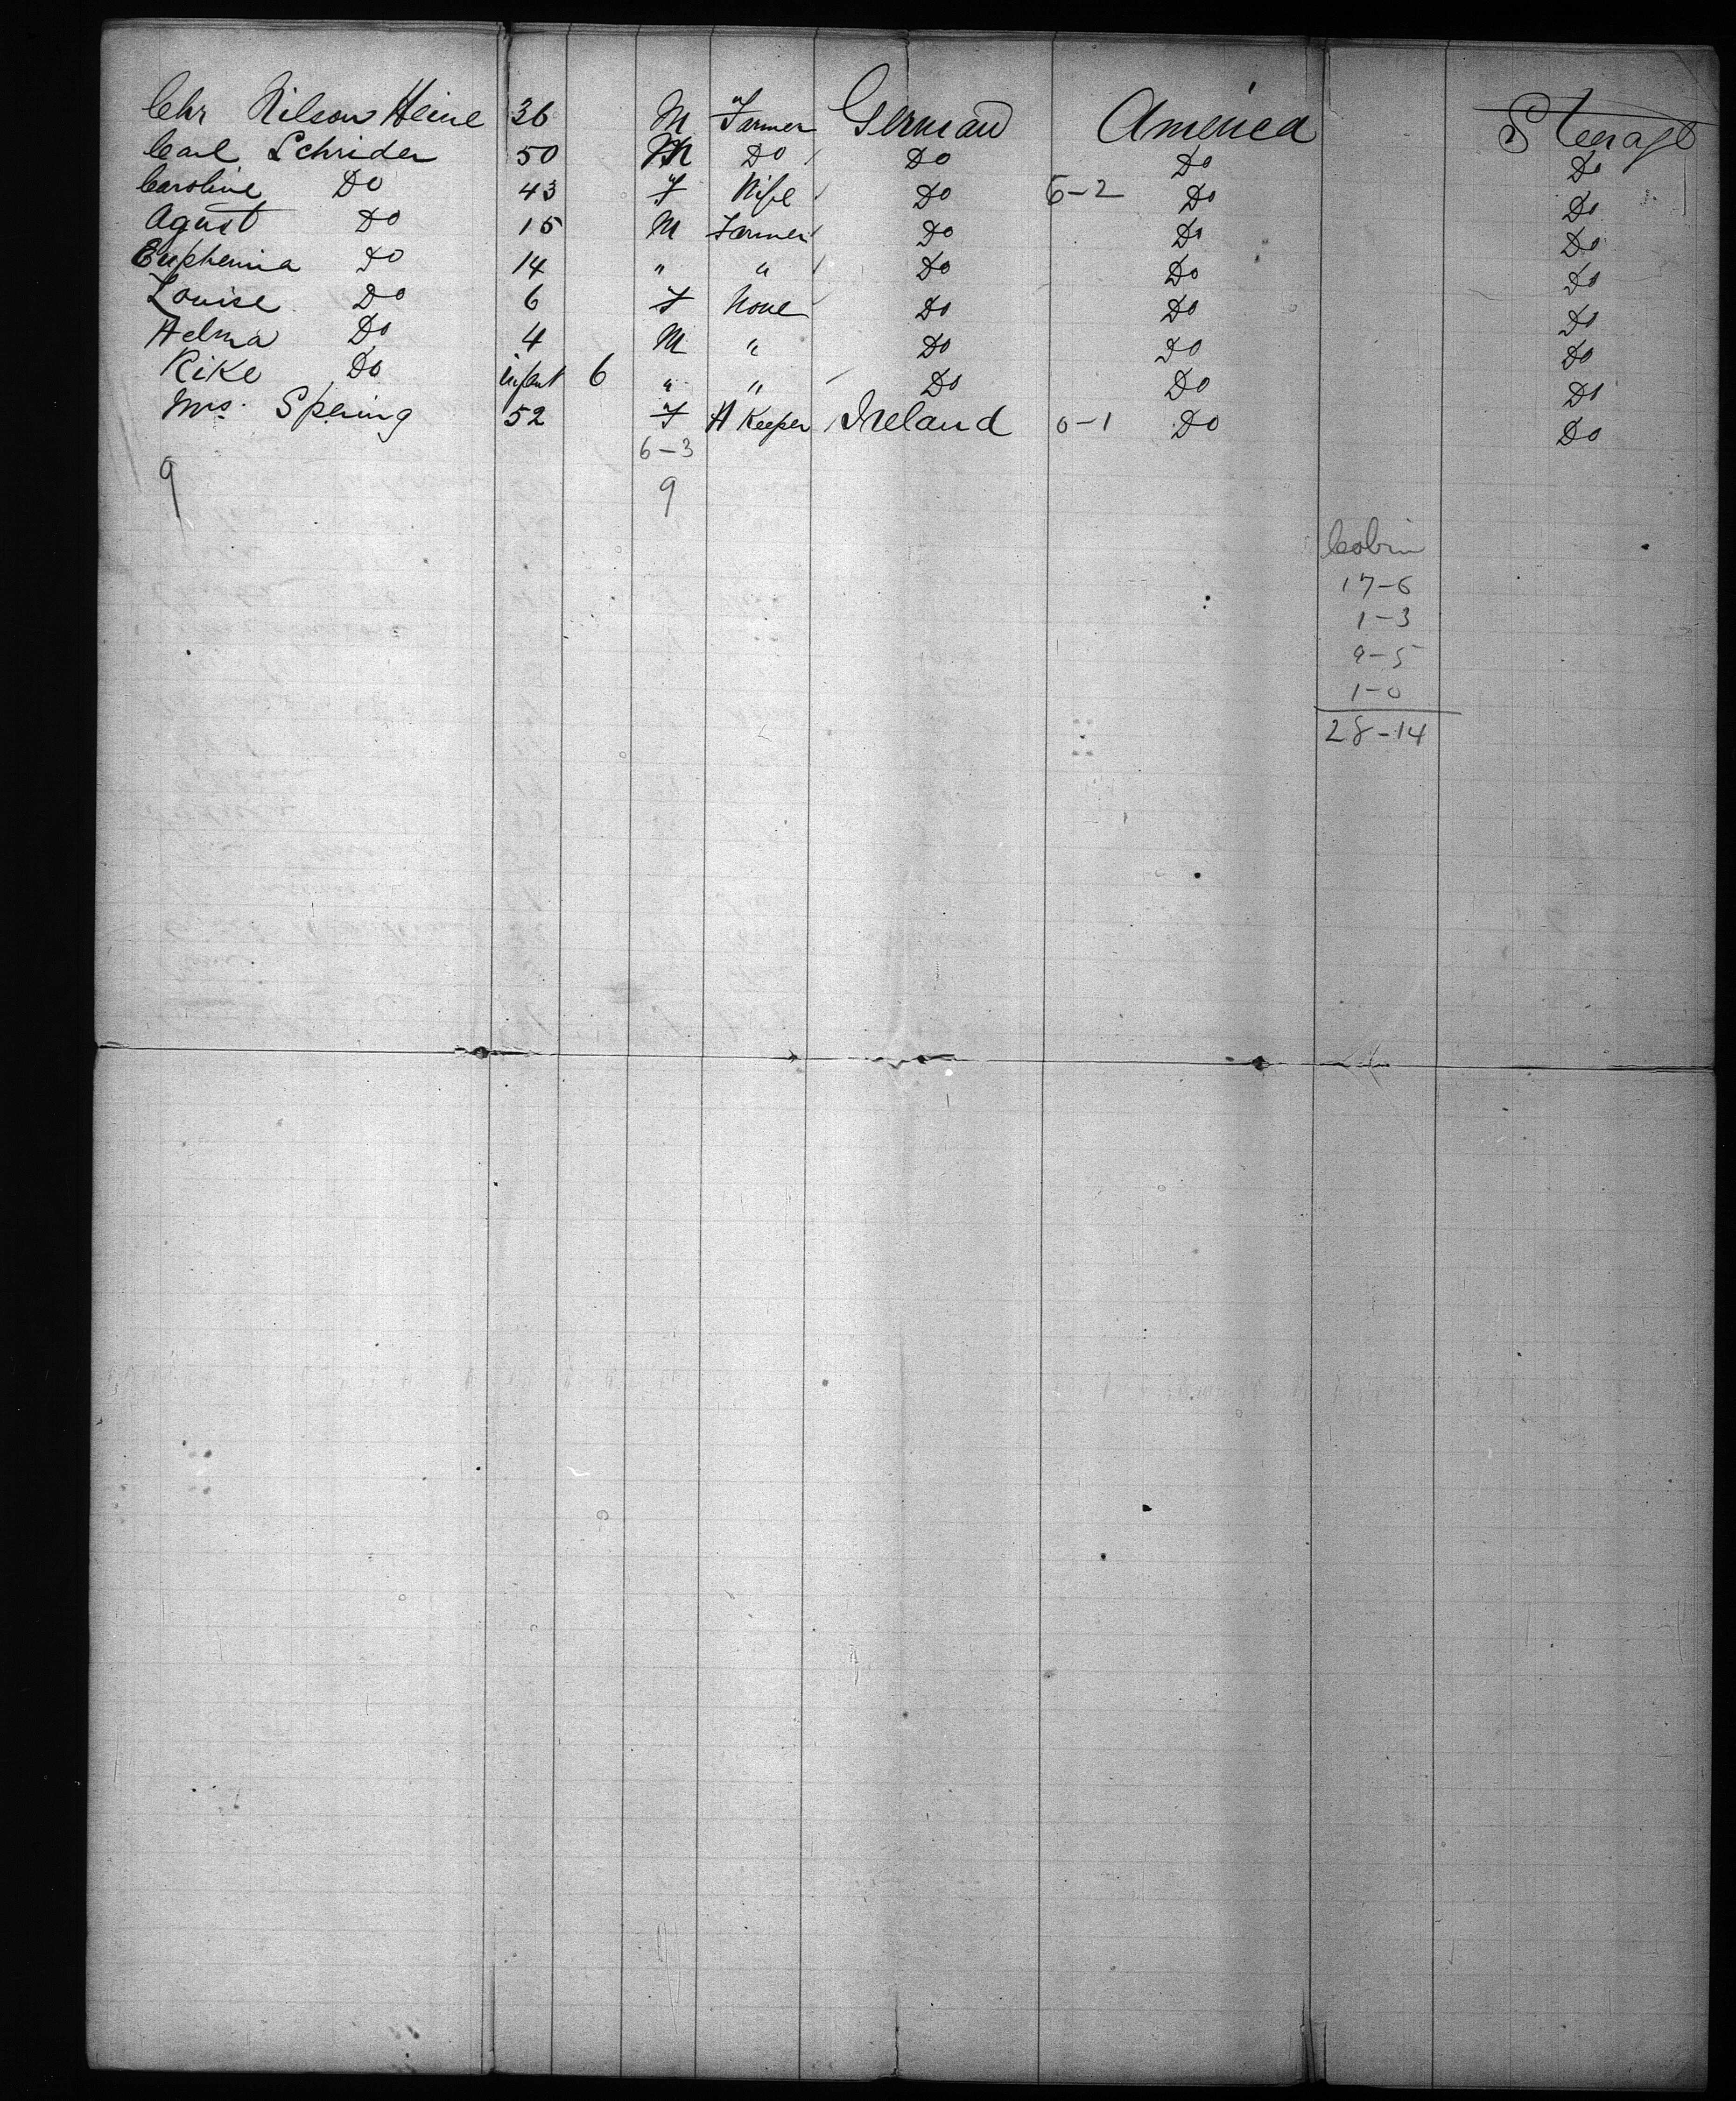 Chr Nilson Heine 36 M Farmer German America Steerage
Carl Schrider 50 M Do Do Do Do
Caroline Do 43 F Wife Do 6-2 Do Do
Agust Do 15 M Farmer Do Do Do
Euphemia Do 14 " " Do Do Do
Louise Do 6 F None Do Do Do
Helma Do 4 M " Do Do Do
Rike Do infant 6 " " Do Do Do
Mrs. Spering 52 F H Keeper Ireland 0-1 Do Do
6-3
9 9
Cabin
17-6
1-3
9-5
1-0
28-14